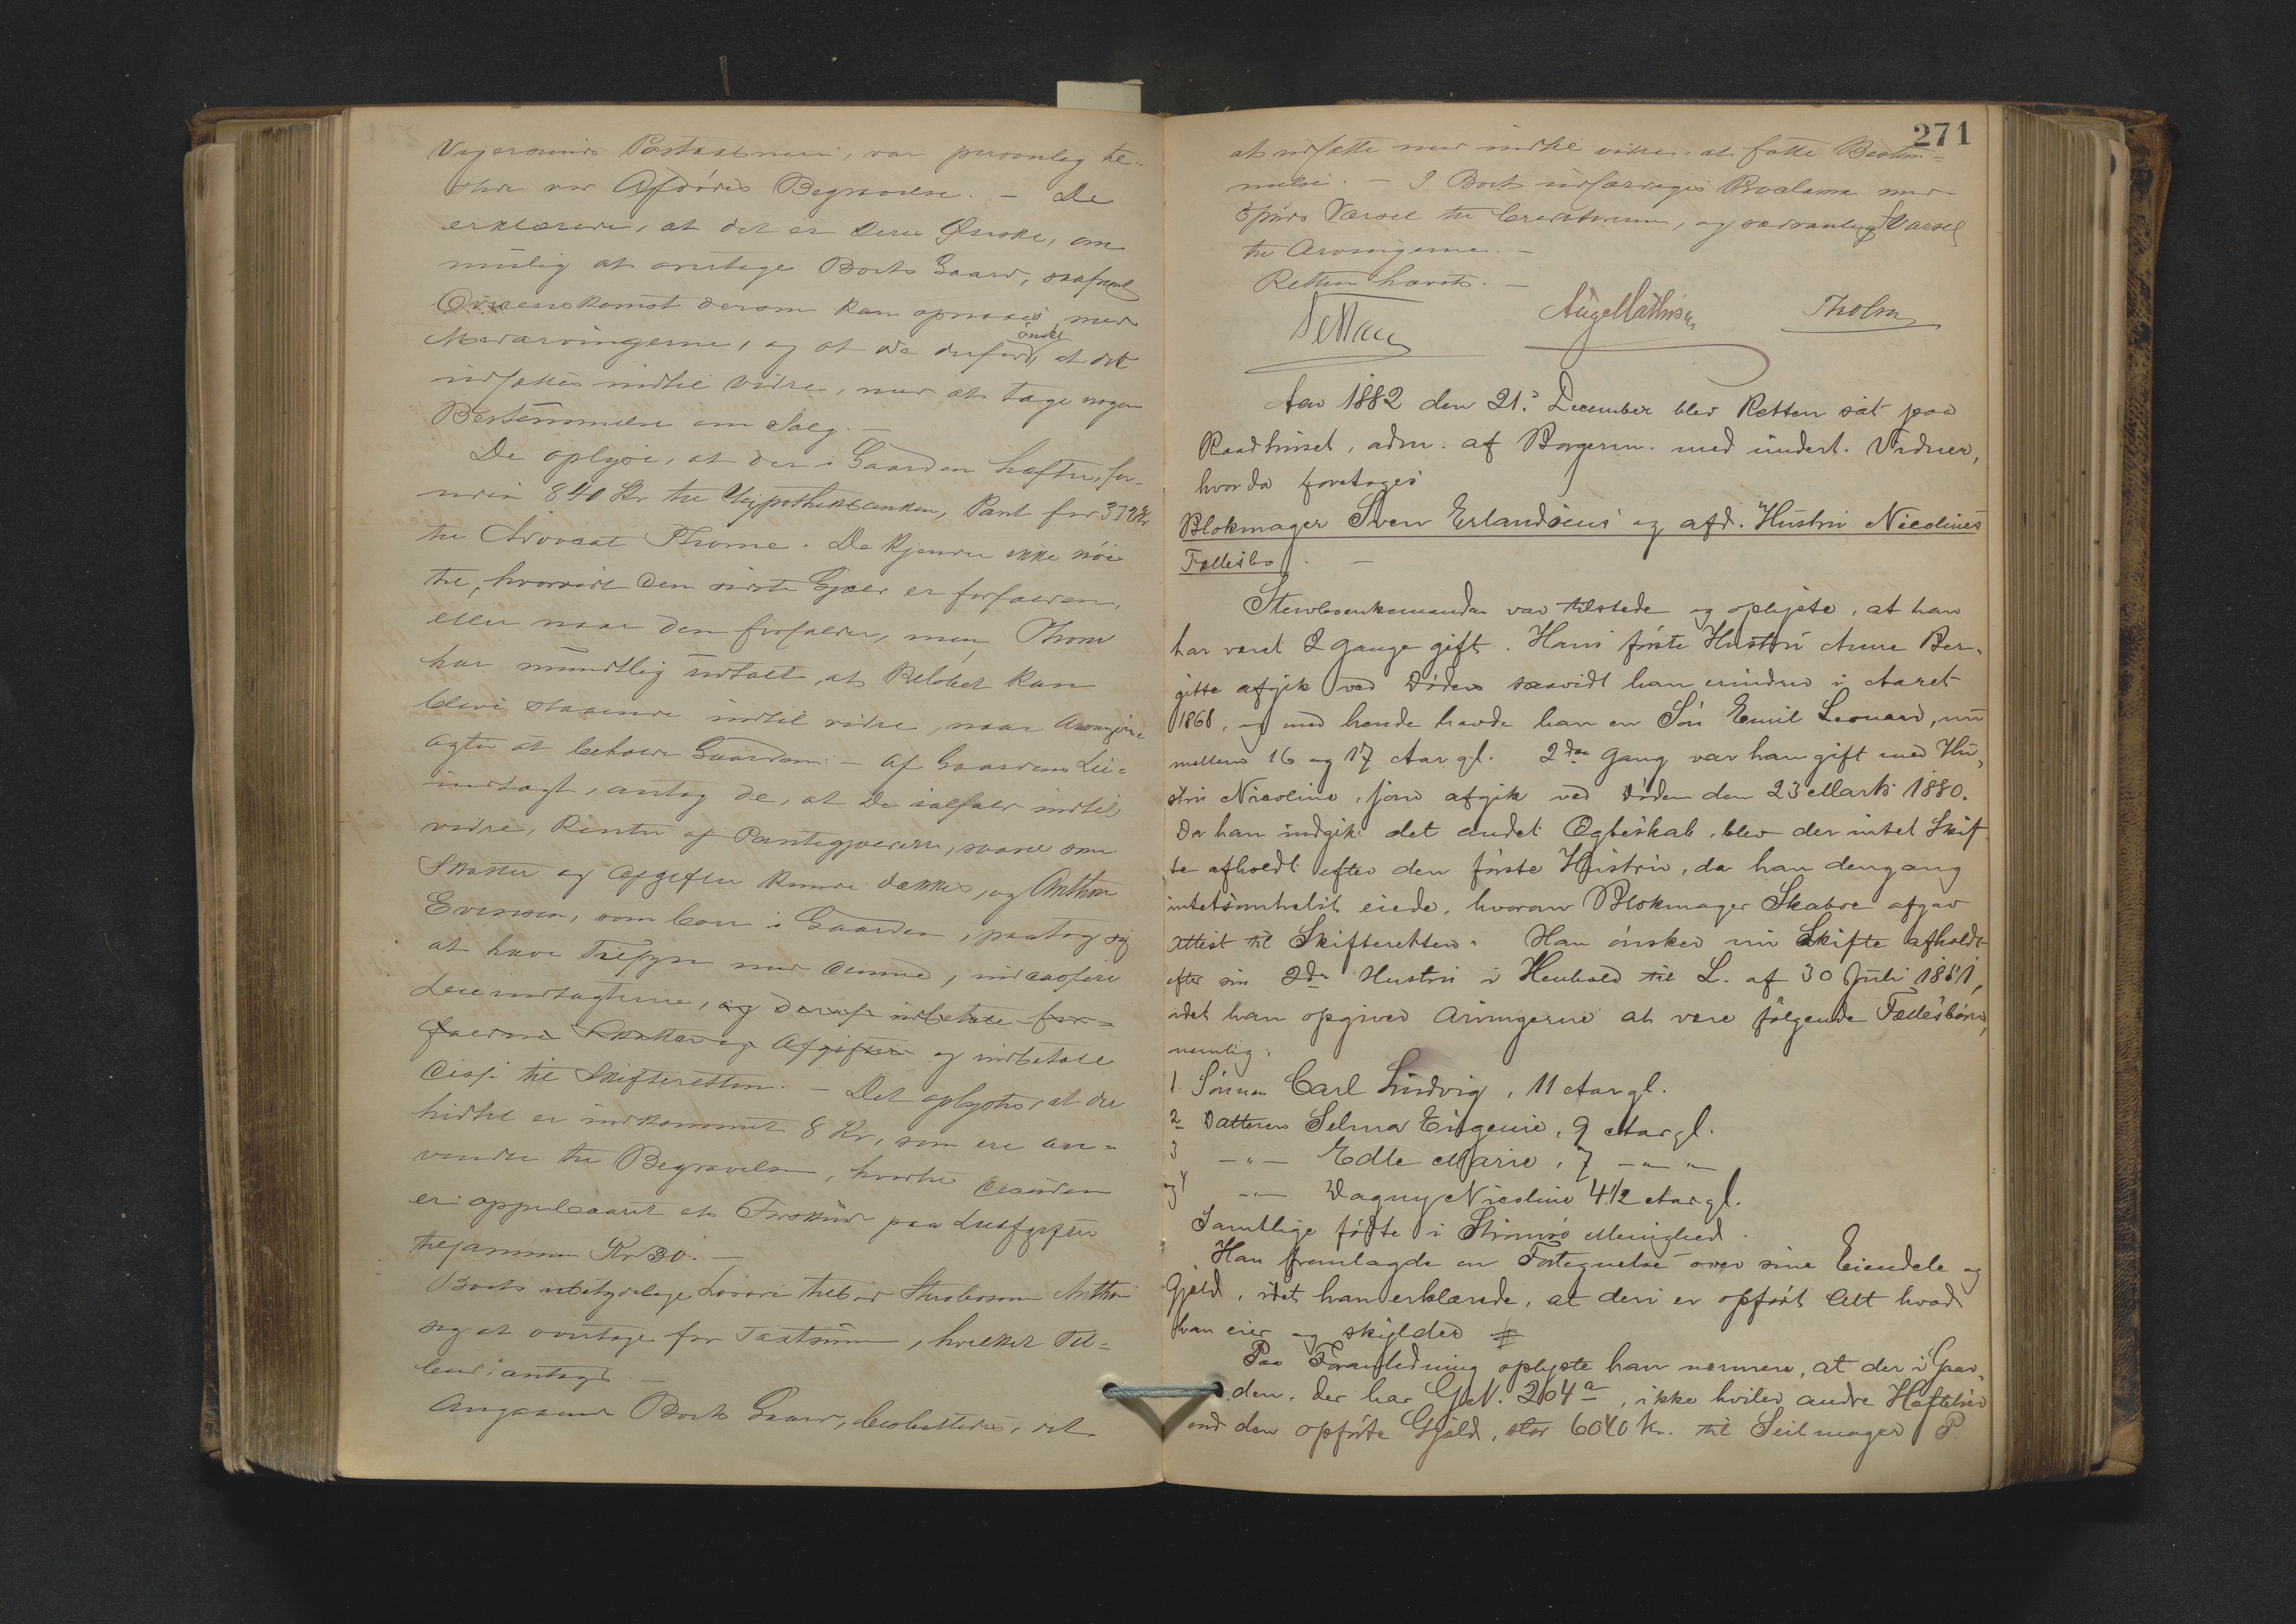 Vagersunds Postaabneri, var personlig til-
stede ved Afdødes Begravelse. - De
erklærede, at det er deres Ønske, om
mulig at overtage Boets Gaard, saafremt
Overenskomst derom kan opnaaes med
Medarvingerne, og at de derfor ønske, at det
udsættes indtil Vidre, med at tage nogen
Bestemmelse om Salg. -
De oplyse, at der i Gaarden hæfter, for-
uden 840 Kr til Hypothekbanken, Pant for 372 Kr
til Advocat Thorne. De kjender ikke nøie
til, hvorvidt den sidste Gjæld er forfalden,
eller naar den forfalder, men Thorne
har mundtlig udtalt, at Beløbet kan
blive staaende indtil vidre, naar Arvingerne
agter at beholde Gaarden. - Af Gaardens Leie-
indtægt, antog de, at de ialfald indtil
vidre, Renter af Pantegjælden, saavel som
Skatter og Afgifter kunde dækkes, og Anthon
Evensen, som bor i Gaarden, paatog sig
at have Tilsyn med denne, indcassere
Leieindtægterne, og deraf udbetale for-
faldne Skatter og Afgifter og indbetale
disse til Skifteretten. - Det oplystes, at der
hidtil er indkommet 8 Kr, som ere an-
vendte til Begravelsen, hvortil desuden
er oppebaaret et Forskud paa Leieafgiften
tilsammen Kr 30. -
Boets ubetydelige Løsøre tilbød Anthon
sig at overtage for Taxtsum, hvilket Til-
bud antoges -
Angaaende Boets Gaard, besluttedes, det
271
at udsætte med indtil vidre, at fatte Bestem-
melse. - I Boet udfærdiges Proclama med
Varsel til Creditorerne, og sædvanlig Varsel
til Arvingerne. -
Retten hævet. -
Aug Mathisen Tholm
Aar 1882 den 21. December blev Retten sat paa
Raadhuset, adm. af Borgerm. med undert. Vidner,
hvor da foretoges
Blokmager Sven Erlandsens og afd. Hustru Nicolines
Fællesbo. -
Sterboenkemanden var tilstede og oplyste, at han
har været 2 gange gift. Hans første Hustru Anne Ber-
gitte afgik ved Døden saavidt han erindrer i Aaret
1868, og med hende havde han en Søn Emil Leonard, nu
mellem 16 og 17 Aar gl. 2den Gang var han gift med Hu-
stru Nicoline, som afgik ved Døden den 23 Marts 1880.
Da han indgik det andet Ægteskab, blev der intet Skif-
te afholdt efter den første Hustru, da han dengang
intetsomhelst eiede, hvorom Blokmager Skaboe afgav
Attest til Skifteretten. Han ønsker nu Skifte afholdt
efter sin 2den Hustru i Henhold til L. af 30 Juli 1851,
idet han opgiver Arvingerne at være følgende Fællesbørn,
nemlig:
1. Sønnen Carl Ludvig, 11 Aar gl.
2 Datteren Selma Eugenie, 9 Aar gl.
3 -"- Edle Marie, 7 -"- "-
og 4 -"- Dagny Nicoline 4 1/2 Aar gl.
Samtlige fødte i Strømsø Menighed.
Han fremlagde en Fortegnelse over sine Eiendele og
Gjæld, idet han erklærede, at deri er opført Alt hvad
han eier og skylder
Paa Foranledning oplyste han nærmere, at der i Gaar-
den, der har G.N. 204a, ikke hviler andre Hæftelser
end den opførte Gjæld, stor 6040 Kr. til Seilmager P.